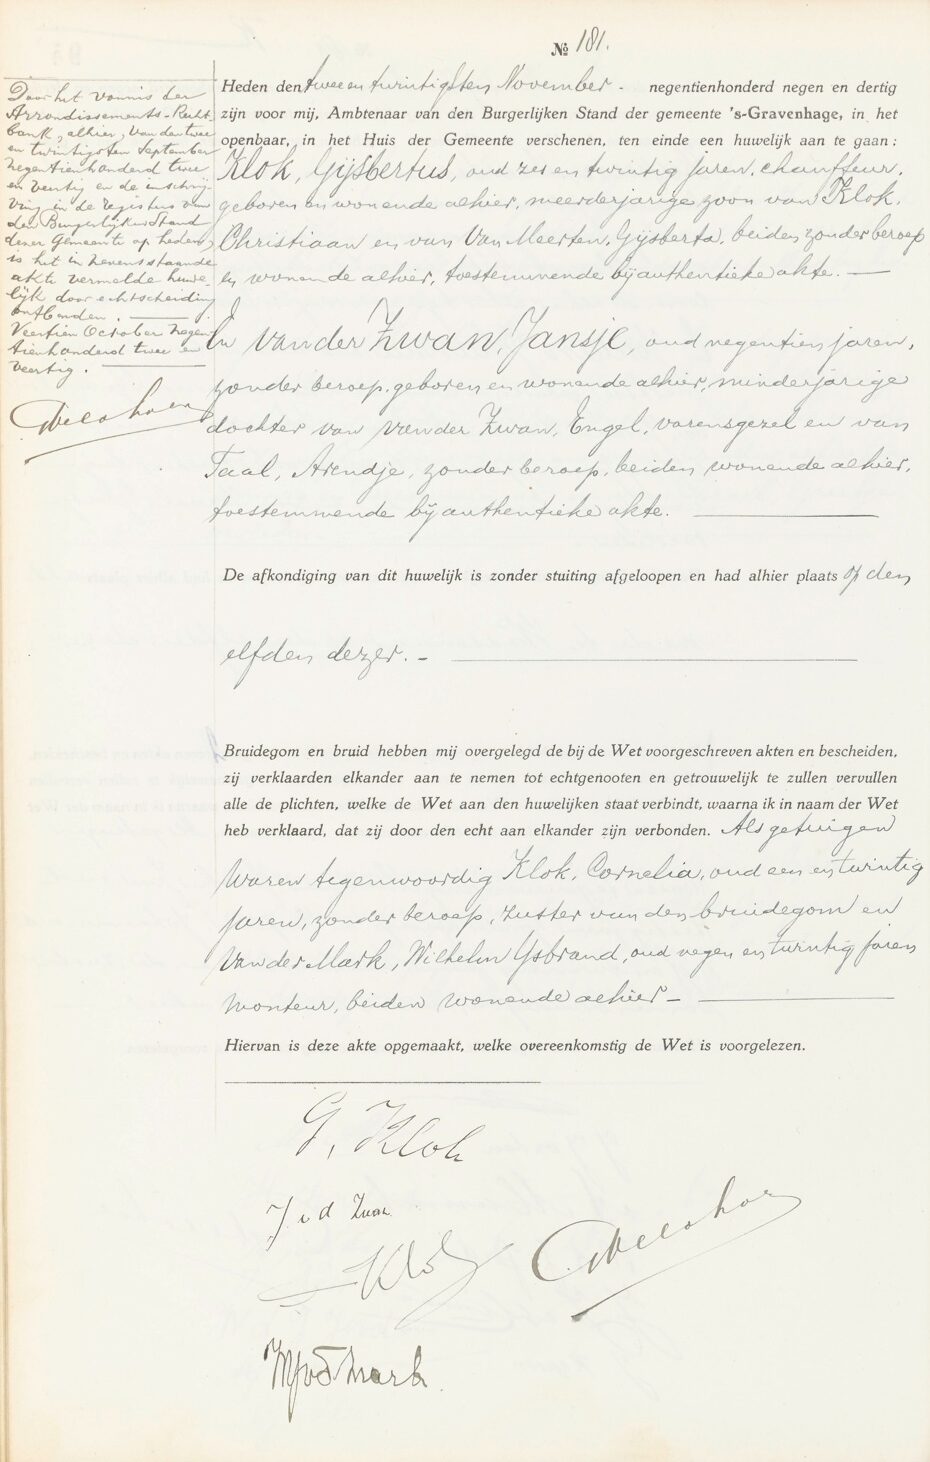 № 181.
Heden den twee en twintigsten November - negentienhonderd negen en dertig
zijn voor mij, Ambtenaar van den Burgerlijken Stand der gemeente 's-Gravenhage, in het
openbaar, in het Huis der Gemeente verschenen, ten einde een huwelijk aan te gaan:
Klok, Gijsbertus, oud zes en twintig jaren, chauffeur,
geboren en wonende alhier, meerderjarige zoon van Klok,
Christiaan en van Van Meerten, Gijsberta, beiden zonder beroep
en wonende alhier, toestemmende bij authentieke akte. —
En van der Zwan, Jansje, oud negentien jaren,
zonder beroep, geboren en wonende alhier, minderjarige
dochter van van der Zwan, Engel, varensgezel en van
Taal, Arendje, zonder beroep, beiden wonende alhier,
toestemmende bij authentieke akte. —
De afkondiging van dit huwelijk is zonder stuiting afgeloopen en had alhier plaats op den
elfden dezer. —
Bruidegom en bruid hebben mij overgelegd de bij de Wet voorgeschreven akten en bescheiden,
zij verklaarden elkander aan te nemen tot echtgenooten en getrouwelijk te zullen vervullen
alle de plichten, welke de Wet aan den huwelijken staat verbindt, waarna ik in naam der Wet
heb verklaard, dat zij door den echt aan elkander zijn verbonden. Als getuigen
waren tegenwoordig Klok, Cornelia, oud een en twintig
jaren, zonder beroep, zuster van den bruidegom en
Van der Mark, Wilhelm Ysbrand, oud negen en twintig jaren
monteur, beiden wonende alhier —
Hiervan is deze akte opgemaakt, welke overeenkomstig de Wet is voorgelezen.
G. Klok
J v d Zwan
Klok
Door het vonnis der
Arrondissements-Recht-
bank, alhier, van den twee
en twintigsten September
negentienhonderd twee
en veertig en de inschrij-
ving in de registers van
den Burgerlijken Stand
dezer Gemeente op heden,
is het in nevenstaande
akte vermelde huwe-
lijk door echtscheiding
ontbonden. —
Veertien October negen-
tienhonderd twee en
veertig. —